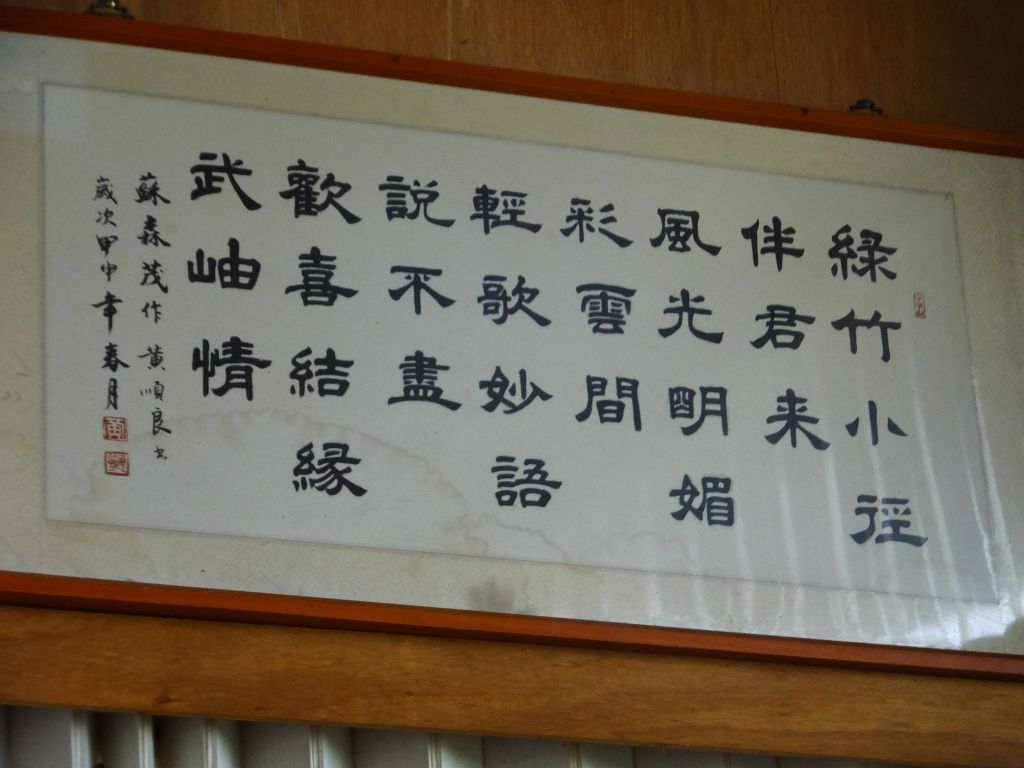 綠竹小徑
伴君来
風光明媚
彩雲間
輕歌妙語
說不盡
歡喜結緣
武岫情
蘇森茂作 黃順良书
歲次甲申年春月